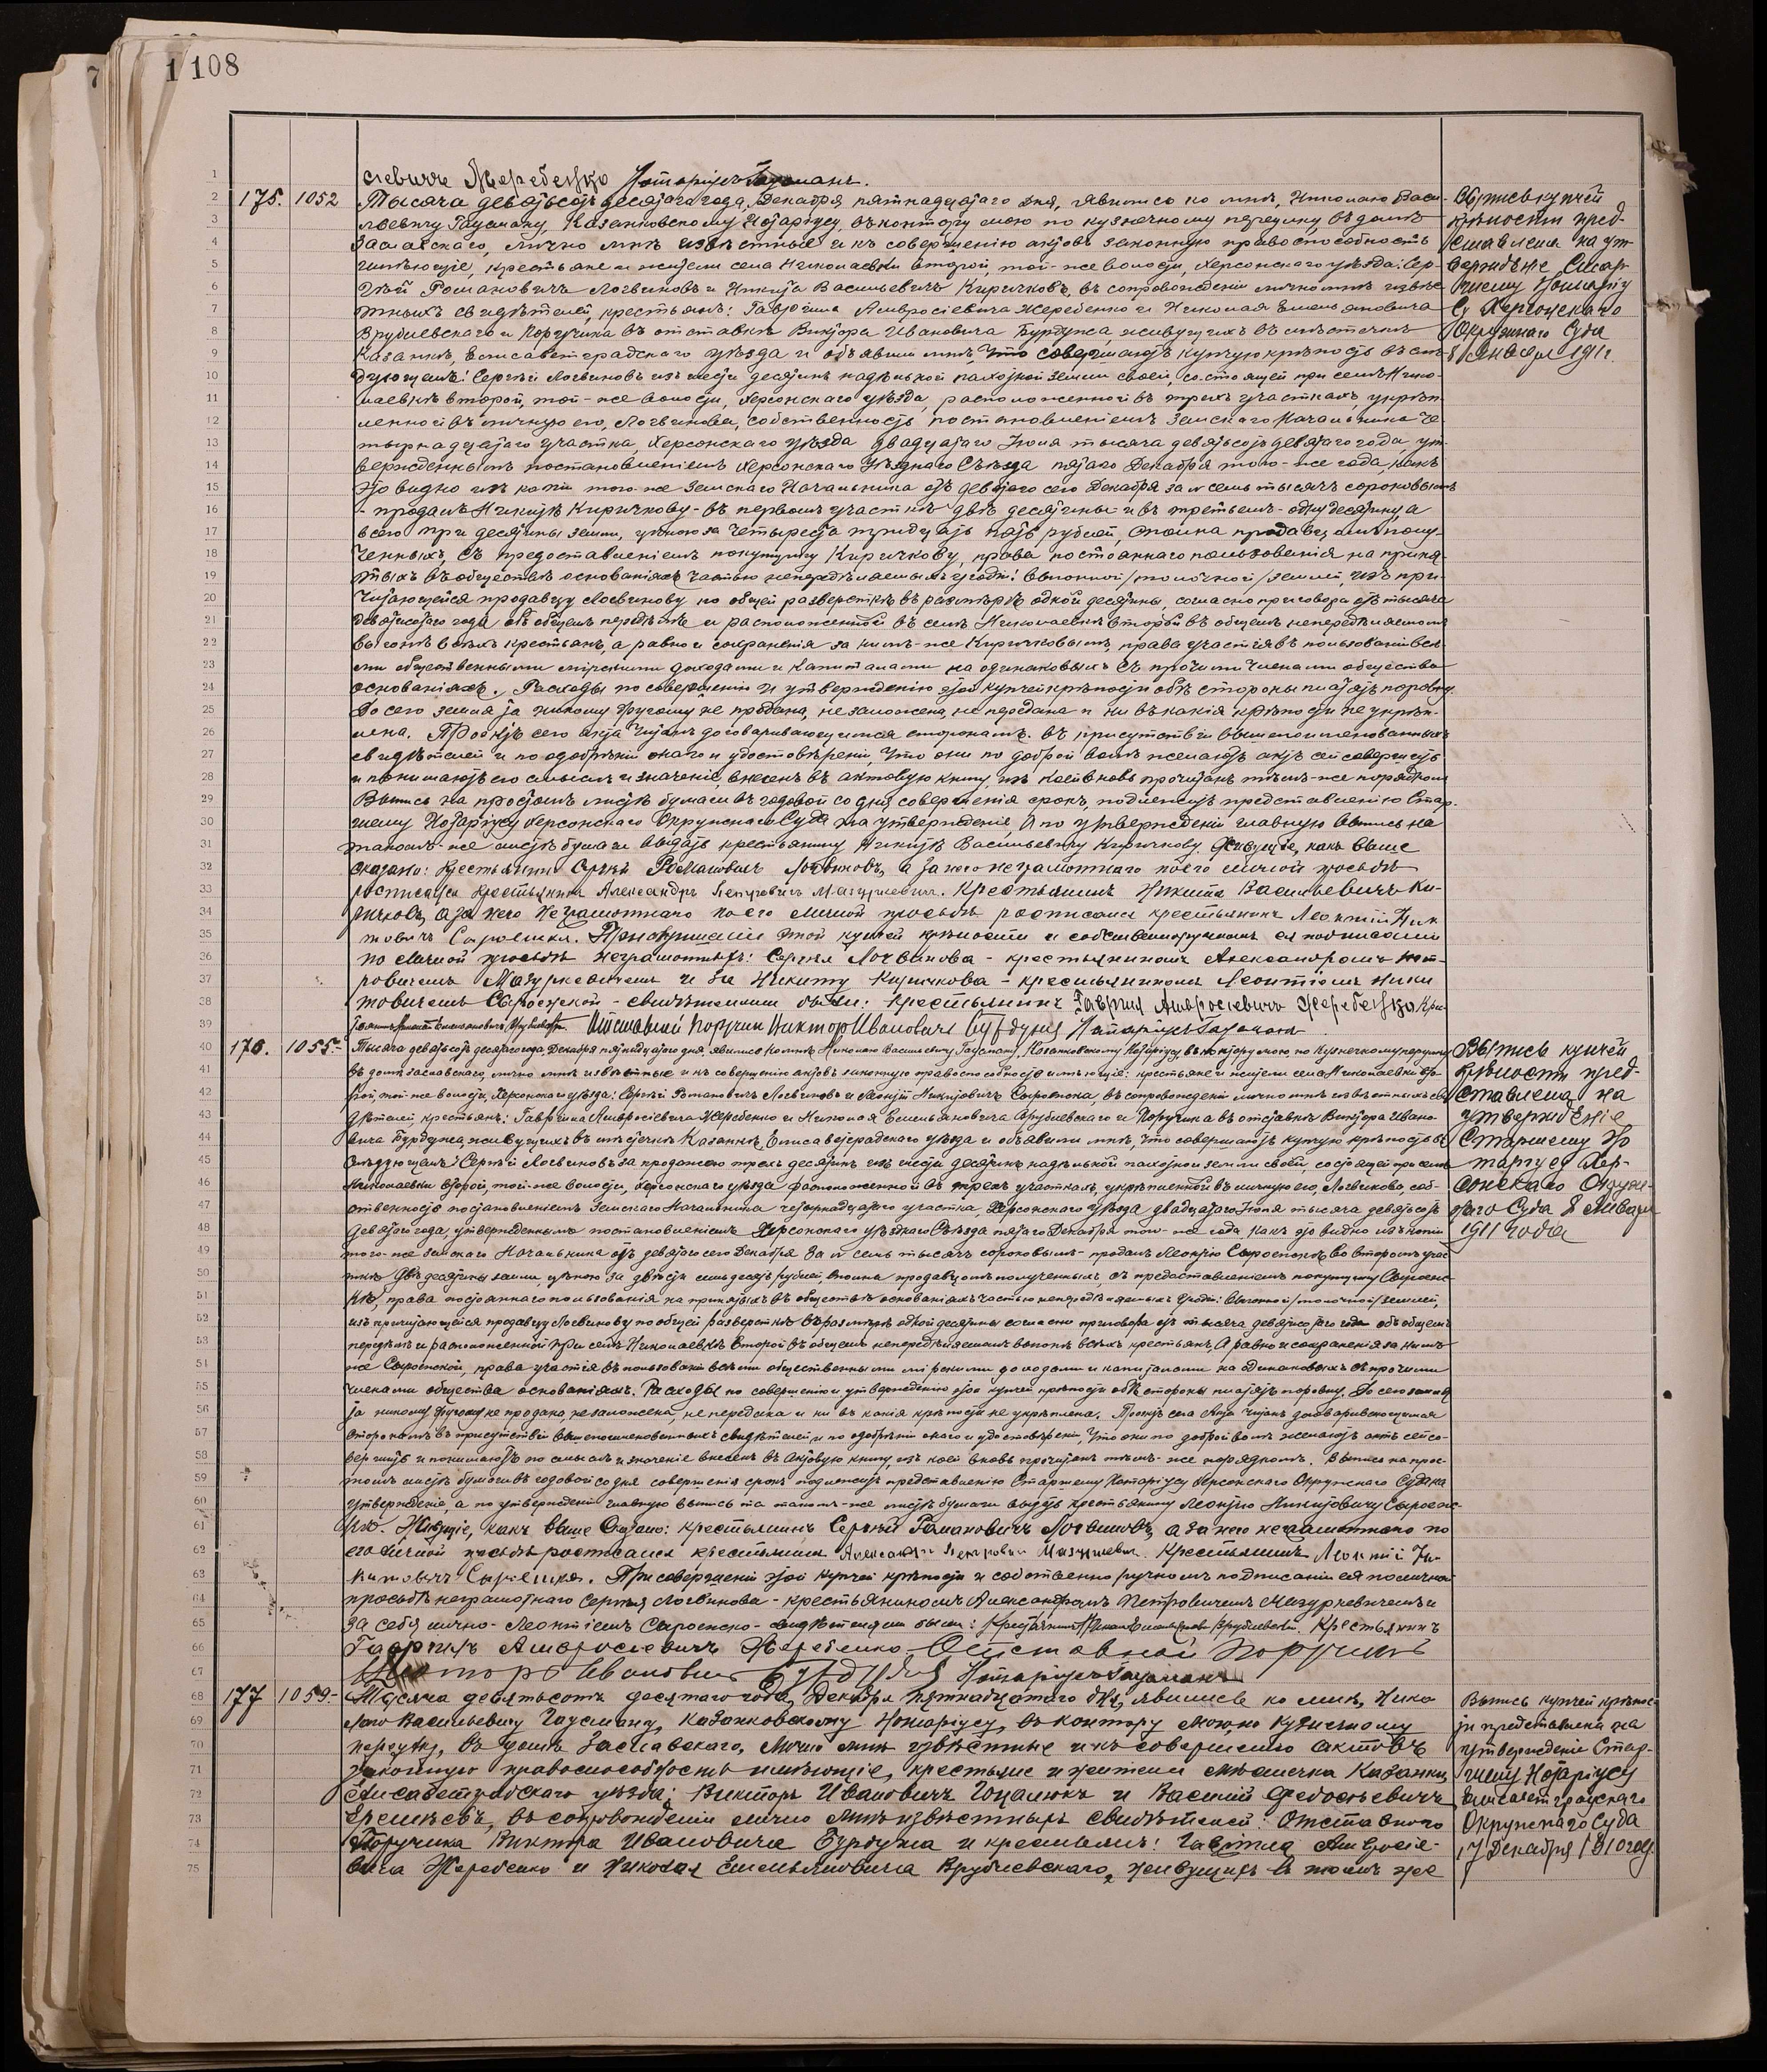 108
сіевичъ Жеребенко Нотаріусъ Гаусманъ.
175. 1052 Тысяча девятьсотъ десятаго года, Декабря пятнадцатаго дня, явились ко мнѣ, Николаю Васи-
льевичу Гаусману, Казанковскому Нотаріусу, въ контору мою по Кузнечному переулку, въ домѣ
Заславскаго, лично мнѣ извѣстные и къ совершенію актовъ законную правоспособность
имѣющіе, крестьяне и жители села Николаевки второй, той-же волости, Херсонскаго уѣзда: Сер-
гѣй Романовичъ Логвиновъ и Никита Васильевичъ Киричковъ, въ сопровожденіи лично мнѣ извѣс-
тныхъ свидѣтелей, крестьянъ: Гавріила Амвросіевича Жеребенко и Николая Емельяновича
Врублевскаго и Поручика въ отставкѣ Виктора Ивановича Бурдужа, живущихъ въ мѣстечкѣ
Казанкѣ, Елисаветградскаго уѣзда и объявили мнѣ, что совершаютъ купчую крѣпость въ слѣ-
дующемъ: Сергѣй Логвиновъ изъ шести десятинъ надѣльной пахотной земли своей, состоящей при селѣ Нико-
лаевкѣ второй, той-же волости, Херсонскаго уѣзда, расположенной въ трехъ участкахъ, укрѣп-
ленной въ личную его, Логвинова, собственность постановленіемъ Земскаго Начальника че-
тырнадцатаго участка, Херсонскаго уѣзда двадцатаго Іюля тысяча девятьсотъ девятаго года, ут-
вержденнымъ постановленіемъ Херсонскаго Уѣзднаго Съѣзда пятаго Декабря того-же года, какъ
это видно изъ копіи того-же Земскаго Начальника отъ девятаго сего Декабря за № семь тысячъ сороковымъ
- продалъ Никитѣ Киричкову - въ первомъ участкѣ двѣ десятины и въ третьемъ - одну десятину, а
всего три десятины земли, цѣною за четыреста тридцать пять рублей, сполна продавцомъ полу-
ченныхъ, съ предоставленіемъ покупщику Киричкову, права постояннаго пользованія на приня-
тыхъ въ обществѣ основаніяхъ частью непередѣляемыхъ угодій: выгонной /толочной/ землей, изъ при-
читающейся продавцу Логвинову по общей разверсткѣ въ размѣрѣ одной десятины, согласно приговора отъ тысяча
девятисотаго года объ общемъ передѣлѣ и расположенной въ селѣ Николаевкѣ второй въ общемъ непередѣляемомъ
выгонѣ всѣхъ крестьянъ, а равно и сохраненія за нимъ-же Киричковымъ, права участія въ пользованіи всѣ-
ми общественными мірскими доходами и капиталами на одинаковыхъ съ прочими членами общества
основаніяхъ. Расходы по совершенію и утвержденію этой купчей крѣпости обѣ стороны платятъ поровну.
До сего земля та никому другому не продана, не заложена, не передана и ни въ какія крѣпости не укрѣп-
лена. Проектъ сего акта читанъ договаривающимся сторонамъ. въ присутствіи вышепоименованныхъ
свидѣтелей и по одобреніи онаго и удостовѣреніи, что они по доброй волѣ желаютъ актъ сей совершить
и понимаютъ его смыслъ и значеніе, внесенъ въ актовую книгу, изъ коей вновь прочитанъ тѣмъ-же порядкомъ
Выпись на простомъ листѣ бумаги въ годовой со дня совершенія срокъ, подлежитъ представленію Стар-
шему Нотаріусу Херсонскаго Окружнаго Суда на утвержденіе, а по утвержденіи главную выпись на
таковомъ-же листѣ бумаги выдать крестьянину Никитѣ Васильевичу Киричкову. Живущіе, какъ выше
сказано: Крестьянинъ Сергѣй Романовичъ Логвиновъ, а за него неграмотнаго по его личной просьбѣ
росписался крестьянинъ Александръ Петровичъ Мазуркевичъ. Крестьянинъ Никита Васильевичъ Ки-
ричковъ, а за него неграмотнаго по его личной просьбѣ росписался крестьянинъ Леонтій Ники-
товичъ Сыроенко. При совершеніи этой купчей крѣпости и собственноручномъ ея подписаніи
по личной просьбѣ неграмотныхъ: Сергѣя Логвинова - крестьяниномъ Александромъ Пет-
ровичемъ Мазуркевичемъ и за Никиту Киричкова - крестьяниномъ Леонтіемъ Ники
товичемъ Сыроенкой - свидѣтелями были: Крестьянинъ Гавріилъ Амвросіевичъ Жеребенко Кре-
стьянинъ Николай Емельяновичъ Врублевскій. Отставной Поручикъ Викторъ Ивановичъ Бурдужа Нотаріусъ Гаусманъ
Выпись купчей
крѣпости пред-
ставлена на ут-
вержденіе Стар-
шему Нотаріу
су Херсонскаго
Окружнаго Суда
8 Января 1911 г.
176. 1055 Тысяча девятьсотъ десятаго года, Декабря пятнадцатаго дня, явились ко мнѣ, Николаю Васильевичу Гаусману, Казанковскому Нотаріусу, въ контору мою по Кузнечному переулку
въ домѣ Заславскаго, лично мнѣ извѣстные и къ совершенію актовъ законную правоспособность имѣющіе: крестьяне и жители села Николаевки вто-
рой, той-же волости, Херсонскаго уѣзда: Сергѣй Романовичъ Логвиновъ и Леонтій Никитовичъ Сыроенко, въ сопровожденіи лично мнѣ извѣстныхъ сви
дѣтелей, крестьянъ: Гавріила Амвросіевича Жеребенко и Николая Емельяновича Врублевскаго и Поручика въ отставкѣ Виктора Ивано-
вича Бурдужа, живущихъ въ мѣстечкѣ Казанкѣ, Елисаветградскаго уѣзда и объявили мнѣ, что совершаютъ купчую крѣпость въ
слѣдующемъ: Сергѣй Логвиновъ за продажею трехъ десятинъ изъ шести десятинъ надѣльной пахотной земли своей, состоящей при селѣ
Николаевки второй, той-же волости, Херсонскаго уѣзда расположенной въ трехъ участкахъ, укрѣпленной въ личную его, Логвинова, соб-
ственность постановленіемъ Земскаго Начальника четырнадцатаго участка, Херсонскаго уѣзда двадцатаго Іюля тысяча девятьсотъ
девятаго года, утвержденнымъ постановленіемъ Херсонскаго уѣзднаго Съѣзда пятаго Декабря того-же года какъ это видно изъ копіи
того-же Земскаго Начальника отъ девятаго сего Декабря за № семь тысячъ сороковымъ - продалъ Леонтію Сыроенкѣ во второмъ учас-
ткѣ двѣ десятины земли, цѣною за двѣсти семьдесятъ рублей, сполна продавцомъ полученныхъ, съ предоставленіемъ покупщику Сыроен-
кѣ, права постояннаго пользованія на принятыхъ въ обществѣ основаніяхъ частью непередѣляемыхъ угодій: выгонной /толочной/ землей,
изъ причитающейся продавцу Логвинову по общей разверсткѣ въ размѣрѣ одной десятины согласно приговора отъ тысяча девятисотаго года объ общемъ
передѣлѣ и расположенной при селѣ Николаевкѣ второй въ общемъ непередѣляемомъ выгонѣ всѣхъ крестьянъ, а равно и сохраненія за нимъ-
же Сыроенкой, права участія въ пользованіи всѣми общественными мірскими доходами и капиталами на одинаковыхъ съ прочими
членами общества основаніяхъ. Расходы по совершенію и утвержденію этой купчей крѣпости обѣ стороны платятъ поровну. До сего земля
та никому другому не продана, не заложена, не передана и ни въ какія крѣпости не укрѣплена. Проектъ сего акта читанъ договаривающимся
сторонамъ въ присутствіи вышепоименованныхъ свидѣтелей, и по одобреніи онаго и удостовѣреніи, что они по доброй волѣ желаютъ актъ сей со-
вершить и понимаютъ его смыслъ и значеніе внесенъ въ актовую книгу, изъ коей вновь прочитанъ тѣмъ-же порядкомъ. Выпись на прос-
томъ листѣ бумаги въ годовой со дня совершенія срокъ подлежитъ представленію Старшему Нотаріусу Херсонскаго Окружнаго Суда на
утвержденіе, а по утвержденіи главную выпись на таковомъ-же листѣ бумаги выдать крестьянину Леонтію Никитовичу Сыроен-
кѣ. Живущіе, какъ выше сказано: крестьянинъ Сергѣй Романовичъ Логвиновъ, а за него неграмотнаго по
его личной просьбѣ росписался крестьянинъ Александръ Петровичъ Мазуркевичъ. Крестьянинъ Леонтій Ни-
китовичъ Сыроенко. При совершеніи этой купчей крѣпости и собственноручномъ подписаніи ея по личной
просьбѣ неграмотнаго Сергѣя Логвинова - крестьяниномъ Александромъ Петровичемъ Мазуркевичемъ и
за себя лично - Леонтіемъ Сыроенко - свидѣтелями были: Крестьянинъ Николай Емельяновичъ Врублевскій. Крестьянинъ
Гавріилъ Амвросіевичъ Жеребенко Отставной Поручикъ
Викторъ Ивановичъ Бурдужа Нотаріусъ Гаусманъ
Выпись купчей
крѣпости пред-
ставлена на
утвержденіе
Старшему Но
таріусу Хер-
сонскаго Окруж-
наго Суда 8 Января
1911 года
177 1059 Тысяча девятьсотъ десятаго года, Декабря пятнадцатаго дня, явились ко мнѣ, Нико
лаю Васильевичу Гаусману, Казанковскому Нотаріусу, въ контору мою по Кузнечному
переулку, въ домѣ Заславскаго, лично мнѣ извѣстные и къ совершенію актовъ
законную правоспособность имѣющіе, крестьяне и жители мѣстечка Казанки,
Елисаветградскаго уѣзда: Викторъ Ивановичъ Гоцалюкъ и Василій Федосѣевичъ
Еремѣевъ, въ сопровожденіи лично мнѣ извѣстныхъ свидѣтелей: Отставного
Поручика Виктора Ивановича Бурдужа и крестьянъ: Гавріила Амвросіе-
вича Жеребенко и Николая Емельяновича Врублевскаго, живущихъ въ томъ же
Выпись купчей крѣпос-
ти представлена на
утвержденіе Стар-
шему Нотаріусу
Елисаветградскаго
Окружнаго Суда
17 Декабря 1910 году.